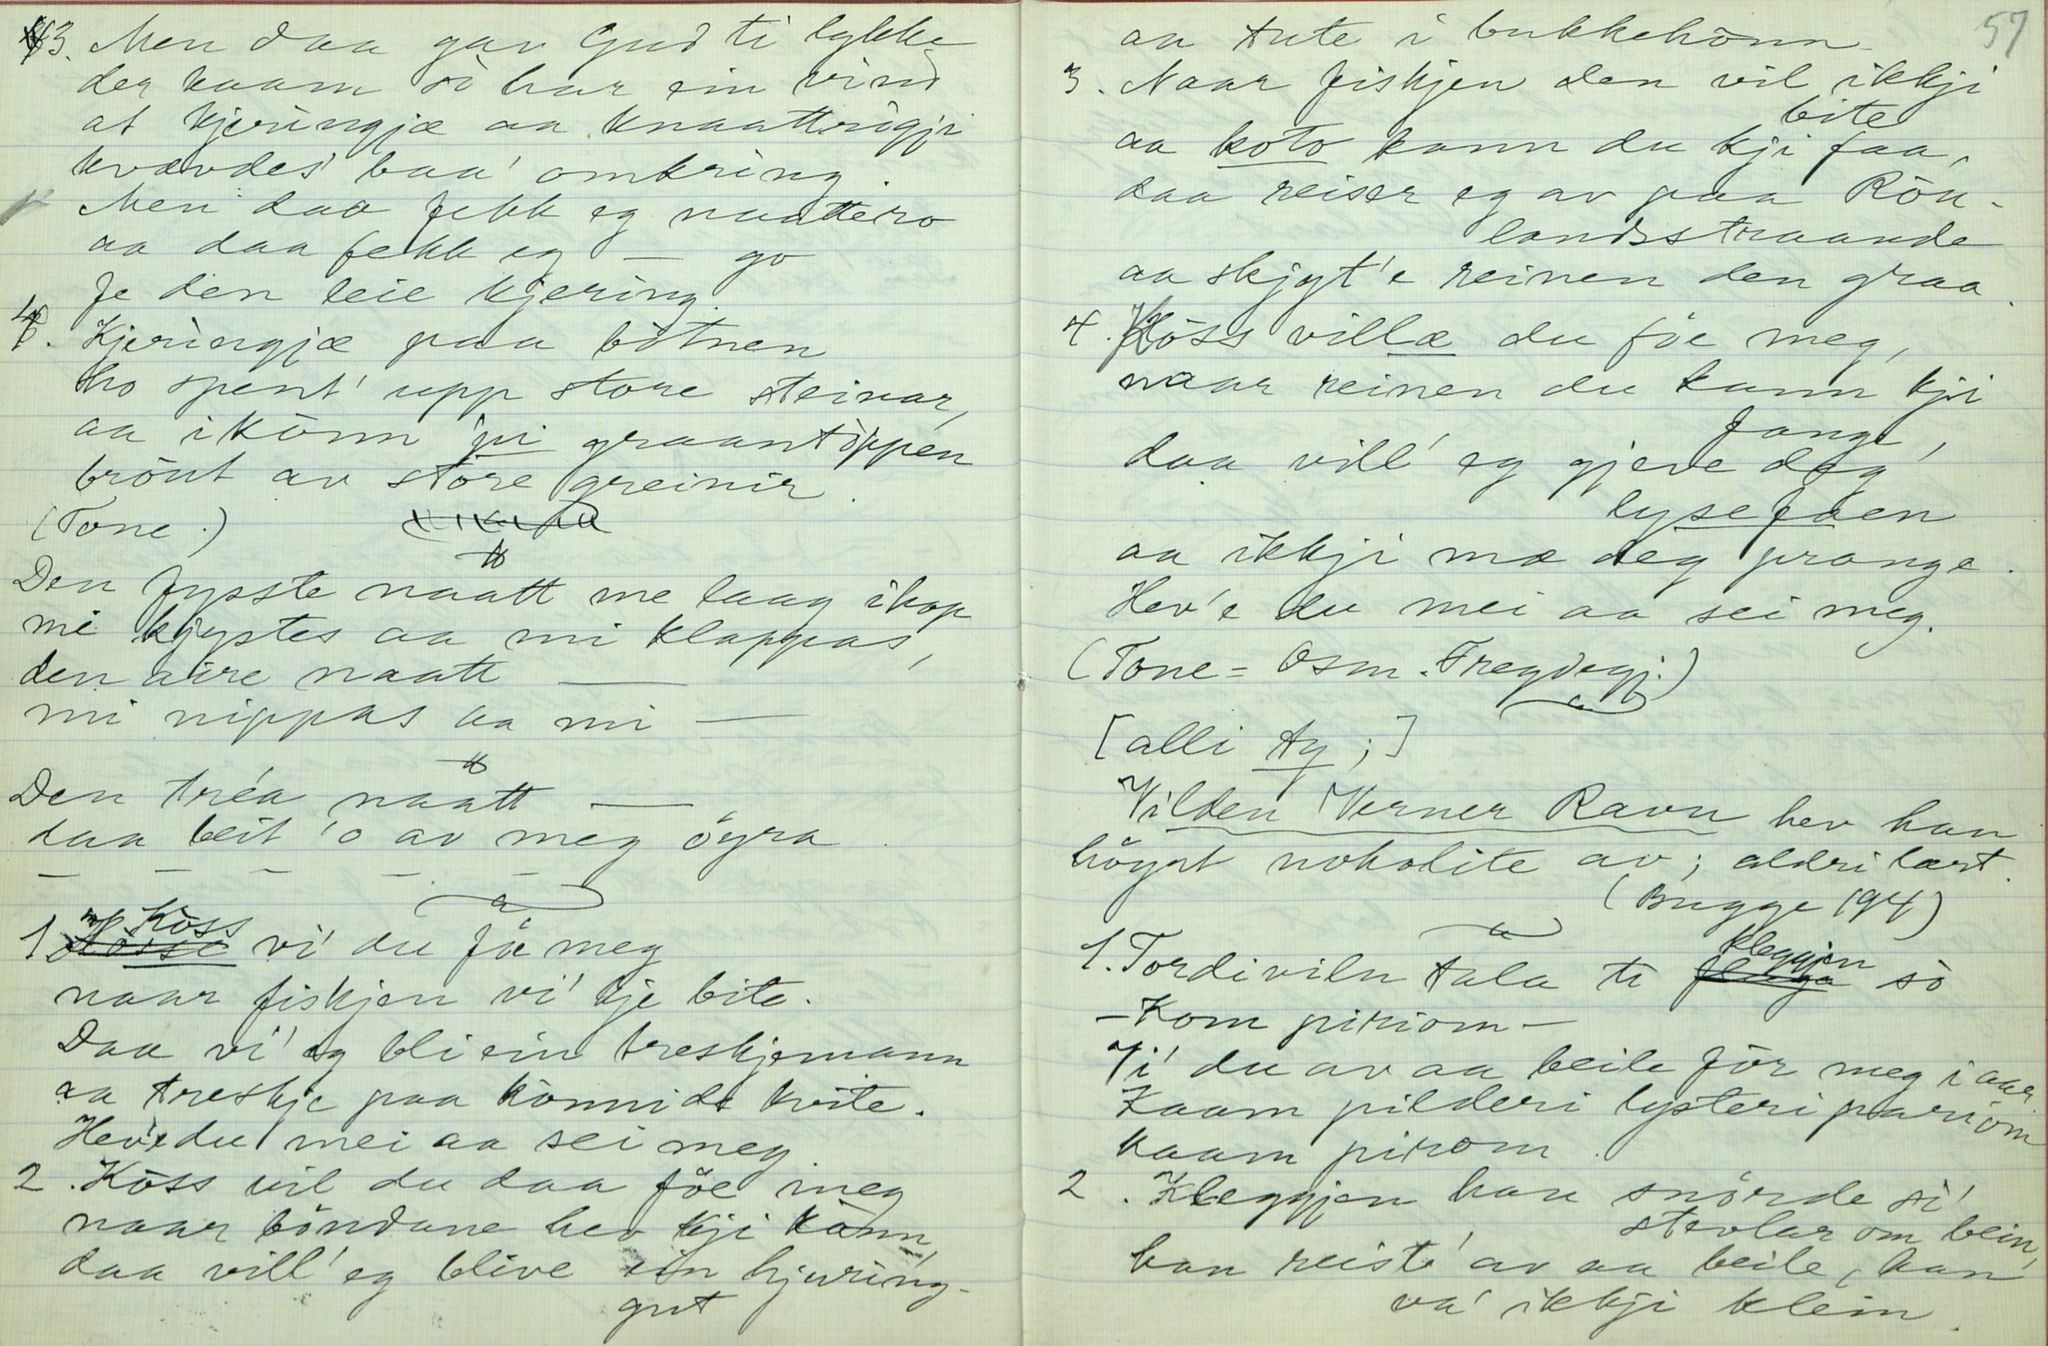 3. Men daa gav Gud ti lykke
der kaam so hav ein vind
at kjeringjæ aa knaattrigji
kvævdes' baa' omkring.
Men daa fekk eg naattero
aa daa fekk eg — go
Fe den leie kjering.
4. Kjeringjæ paa bòtnen
ho spent' upp store steinar,
aa ikònn gji graantòppen
brònt av store greinir.
(Tone.)
Den fysste naatt me laag ihop
mi kjystes aa mi klappas,
den aire naatt ———
mi nippas aa mi ———
Den tréa naatt ———
daa beit 'o av meg öyra.
— — — — — —
1. Köss vi' du fö meg
naar fiskjen vi' kje bite.
Daa vi' eg bli ein treskjemann
aa treskje paa konnide kvite.
Hev'e du mei aa sei meg.
2. Köss vil du daa föe meg
naar böndane hev kji könn,
daa vill' eg blive ein hjuring-
gut
57
aa tute i bukkehònn.
3. Naar fiskjen den vil ikkji
bite
aa koto kann du kji faa,
daa reiser eg av paa Röu-
landsstraande
aa skjyt'e reinen den graa.
4. Köss villæ du föe meg,
naar reinen du kann kji
fange,
daa vill' eg gjeve deg
lysefaen
aa ikkji mæ deg prange.
Hev'e du mei aa sei meg.
(Tone = Osm. Fregdegj.)
[alli ty;]
Vilden Verner Ravn hev han
höyrt nokolite av; aldri lært.
(Bugge 194)
1. Tordiviln tala te kleggjen sò
— Kom piriom —
Vi' du av aa beile för meg i aar.
Kaam pilderi lysteri pariom
kaam pirom.
2. Kleggjen han snörde si'
stevlar om bein,
han reiste' av aa beile, han
va' ikkji klein.